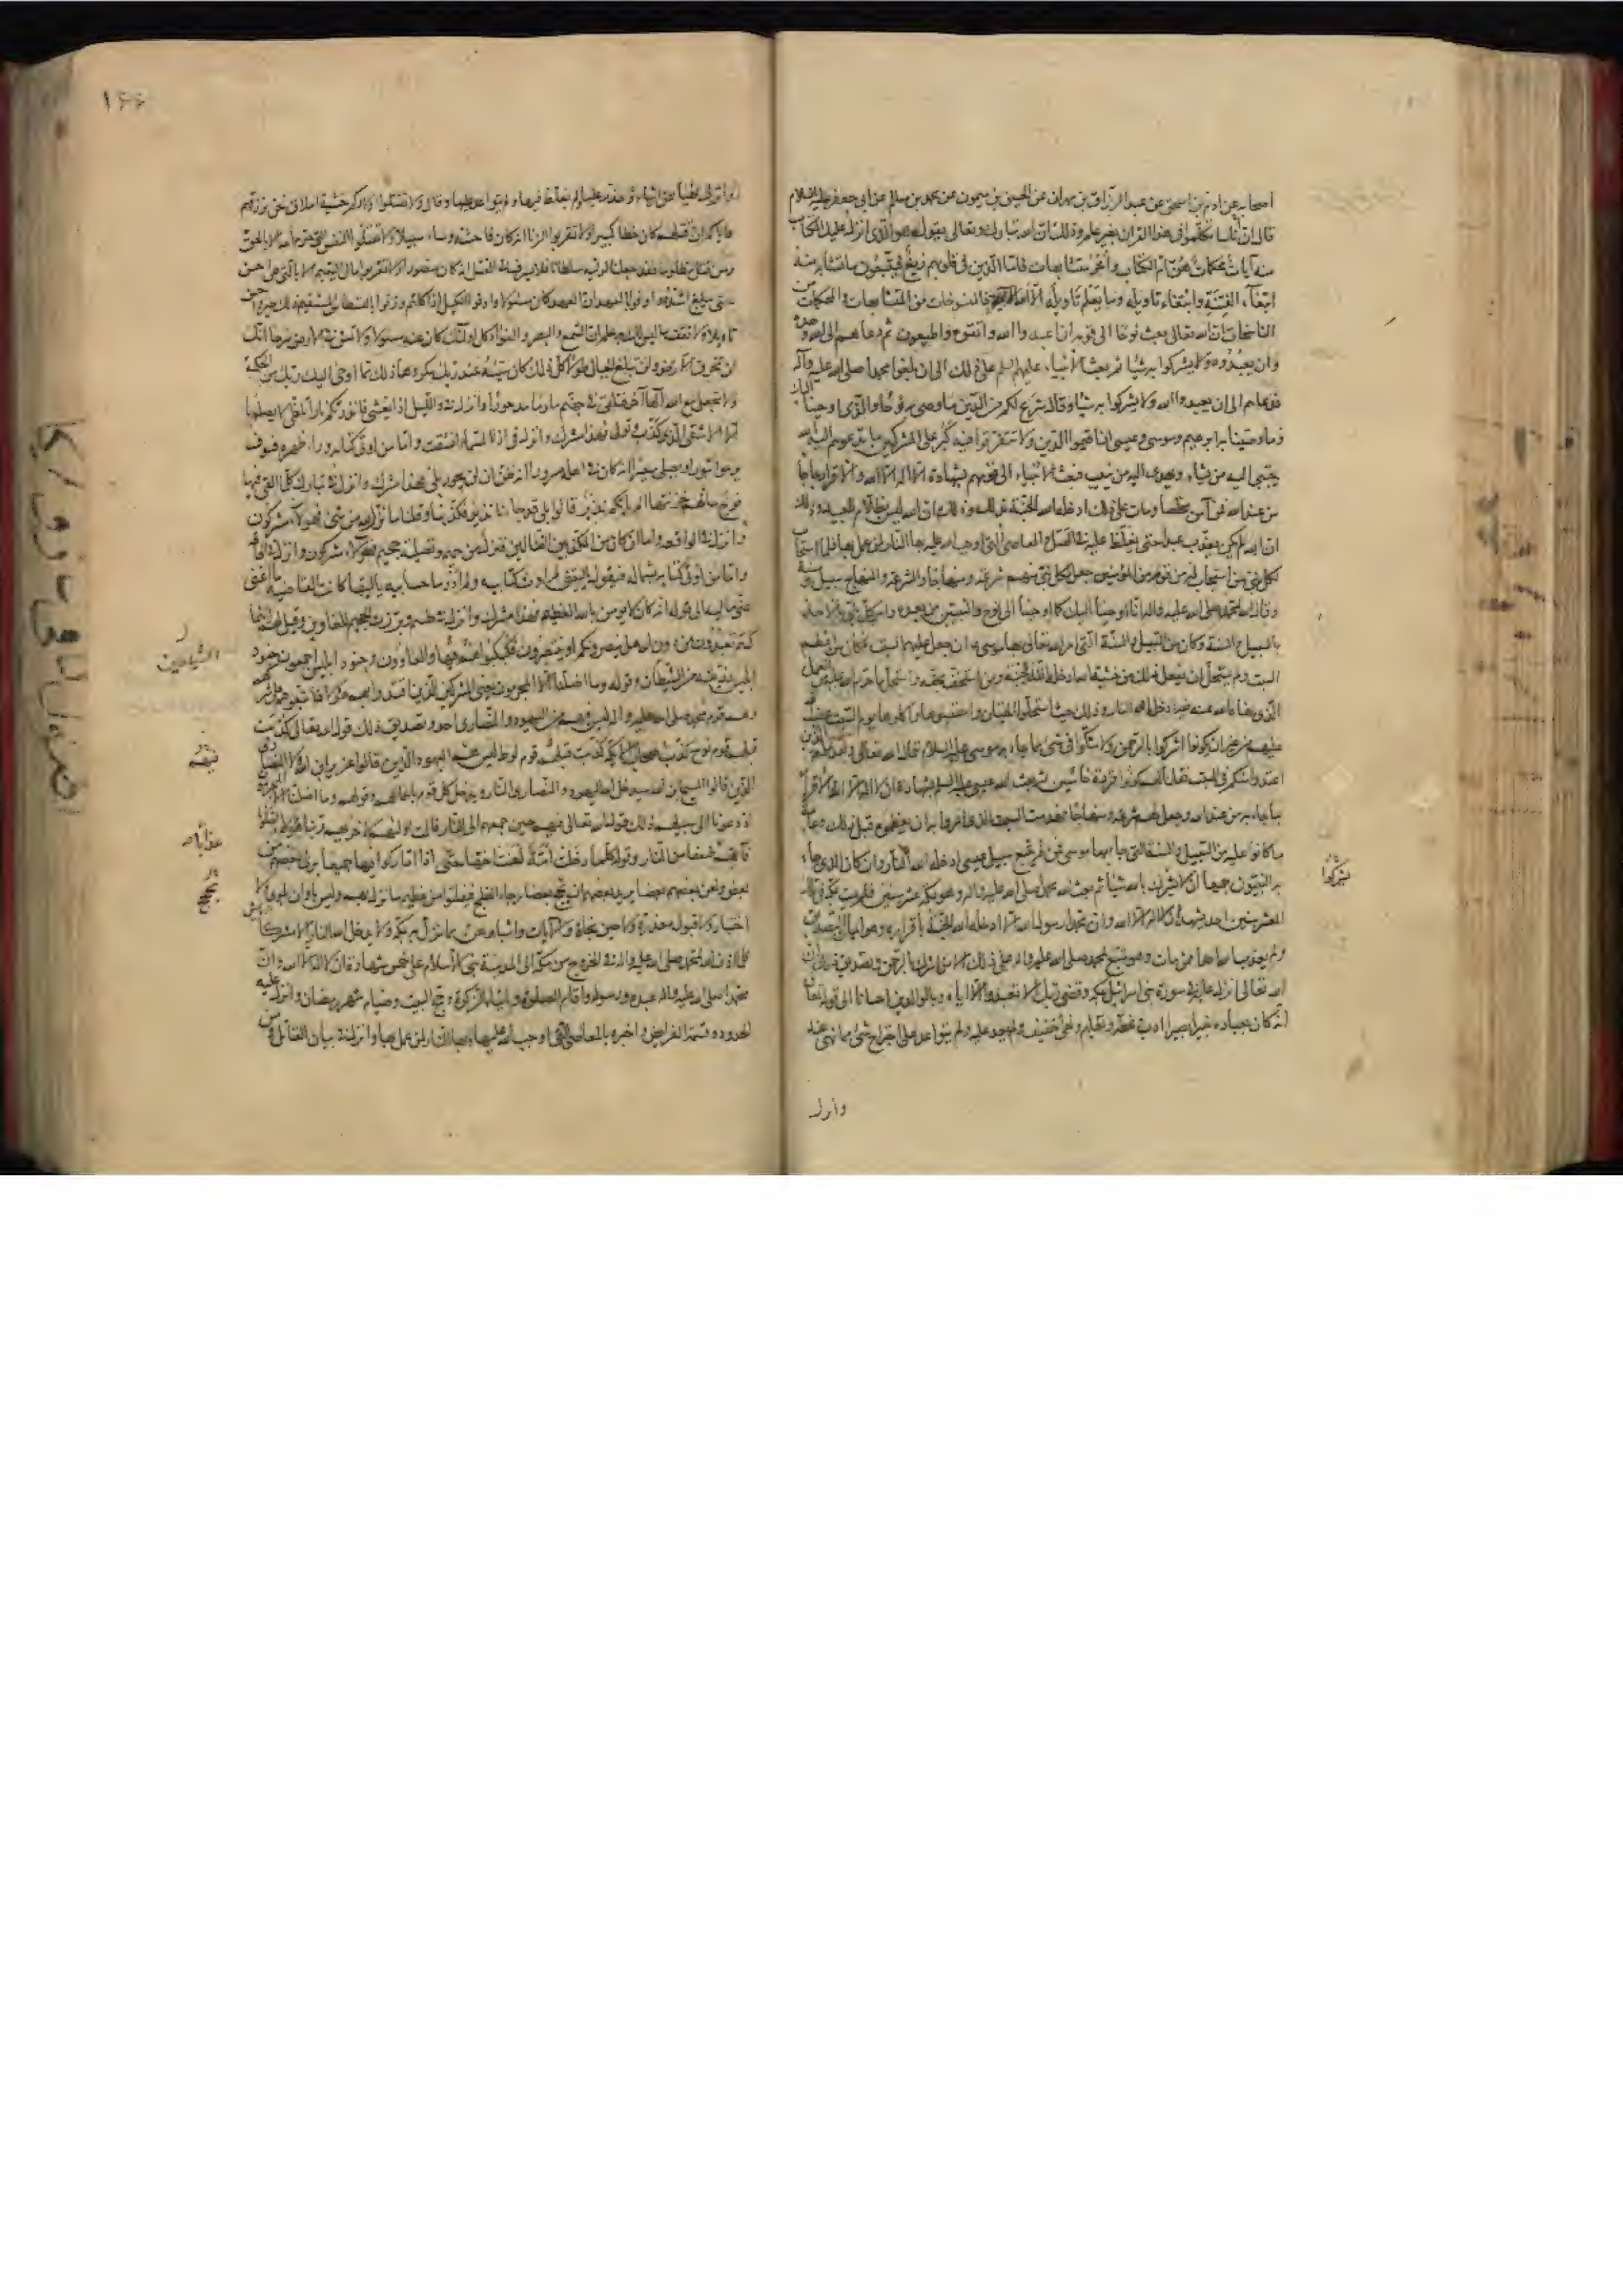 اصحابه عن ادم بن اسحق عن عبد الرزاق بن مهران عن الحسين بن ميمون عن محمد بن سالم عن ابى جعفر عليه السلام
قال ان اناسا تكلموا فى هذا القران بغير علم وذلك ان الله تبارك وتعالى يقول هو الذى انزل عليك الكتاب
منه آيات محكمات هن ام الكتاب وأخر متشابهات فاما الذين فى قلوبهم زيغ فيتبعون ما تشابه منه
ابتغاء الفتنة وابتغاء تاويله وما يعلم تاويله الا الله فالمنسوخات من المتشابهات والمحكمات من
الناسخات ان الله تعالى بعث نوحا الى قومه ان اعبدوا الله واتقوه واطيعون ثم دعاهم الى الله وحده
وان يعبدوه ولا يشركوا به شيئا ثم بعث الانبياء عليهم السلم على ذلك الى ان بلغوا محمدا صلى الله عليه وآله
فدعاهم الى ان يعبدوا الله ولا يشركوا به شيئا وقال شرع لكم من الدين ما وصى به نوحا والذى اوحينا اليك
وما وصينا به ابرهيم وموسى وعيسى ان اقيموا الدين ولا تتفرقوا فيه كبر على المشركين ما تدعوهم اليه الله
يجتبى اليه من يشاء ويهدى اليه من ينيب فبعث الانبياء الى قومهم بشهادة ان لا اله الا الله والاقرار بما جاء
من عند الله فمن آمن مخلصا ومات على ذلك ادخله الله الجنة بذلك وذلك ان الله ليس بظلام للعبيد وذلك
ان الله لم يكن يعذب عبدا حتى يغلظ عليه فى القتل والمعاصى التى اوجب الله عليه بها النار لمن عمل بها فلما استجاب
لكل نبى من استجاب له من قومه من المؤمنين جعل لكل نبى منهم شرعة ومنهاجا والشرعة والمنهاج سبيل وسنة
وقال الله لمحمد صلى الله عليه وآله انا اوحينا اليك كما اوحينا الى نوح والنبيين من بعده وامر كل نبى بالاخذ
بالسبيل والسنة وكان من السبيل والسنة التى امر الله تعالى بها موسى ان جعل عليهم السبت فكان من اعظم
السبت ولم يستحل ان يفعل ذلك من خشية الله ادخله الله الجنة ومن استخف بحقه واستحل ما حرم الله عليه من العمل
الذى نهاه الله عنه فيه ادخله الله النار وذلك حيث استحلوا الحيتان واحتبسوها واكلوها يوم السبت غضب الله
عليهم من غير ان يكونوا اشركوا بالرحمن ولا شكوا فى شىء مما جاء به موسى عليه السلام قال الله تعالى ولقد علمتم الذين
اعتدوا منكم فى السبت فقلنا لهم كونوا قردة خاسئين ثم بعث الله عيسى عليه السلم بشهادة ان لا اله الا الله والاقرار
بما جاء به من عند الله وجعل لهم شرعة ومنهاجا فهدمت السبت الذى امروا به ان يعظموه قبل ذلك وعامة
ما كانوا عليه من السبيل والسنة التى جاء بها موسى فمن لم يتبع سبيل عيسى ادخله الله النار وان كان الذى جاء
به النبيون جميعا ان لا يشركوا بالله شيئا ثم بعث الله محمدا صلى الله عليه وآله وهو بمكة عشر سنين فلم يمت بمكة فى تلك
العشر سنين احد يشهد ان لا اله الا الله وان محمدا رسول الله الا ادخله الله الجنة باقراره وهو ايمان التصديق
ولم يعذب الله احدا ممن مات وهو متبع لمحمد صلى الله عليه وآله على ذلك الا من اشرك بالرحمن وتصديق ذلك ان
الله تعالى انزل عليه فى سورة بنى اسرائيل بمكة وقضى ربك الا تعبدوا الا اياه وبالوالدين احسانا الى قوله تعالى
انه كان بعباده خبيرا بصيرا ادب وعظة وتعليم ونهى خفيف ولم يعد عليه ولم يتواعد على اجتراح شىء مما نهى عنه
وانزل
يشركوا
١٤٤
وانزل نهيا عن اشياء وحذر عليها ولم يغلظ فيها ولم يتواعد عليها وقال ولا تقتلوا اولادكم خشية املاق نحن نرزقهم
واياكم ان قتلهم كان خطأ كبيرا ولا تقربوا الزنا انه كان فاحشة وساء سبيلا ولا تقتلوا النفس التى حرم الله الا بالحق
ومن قتل مظلوما فقد جعلنا لوليه سلطانا فلا يسرف فى القتل انه كان منصورا ولا تقربوا مال اليتيم الا بالتى هى احسن
حتى يبلغ اشده واوفوا بالعهد ان العهد كان مسئولا واوفوا الكيل اذا كلتم وزنوا بالقسطاس المستقيم ذلك خير واحسن
تاويلا ولا تقف ما ليس لك به علم ان السمع والبصر والفؤاد كل اولئك كان عنه مسئولا ولا تمش فى الارض مرحا انك
لن تخرق الارض ولن تبلغ الجبال طولا كل ذلك كان سيئه عند ربك مكروها ذلك مما اوحى اليك ربك من الحكمة
ولا تجعل مع الله آلها آخر فتلقى فى جهنم ملوما مدحورا وانزل فى والليل اذا يغشى فانذرتكم نارا تلظى لا يصليها
الا الاشقى الذى كذب وتولى فهذا مشرك وانزل فى اذا السماء انشقت واما من اوتى كتابه وراء ظهره فسوف
يدعوا ثبورا ويصلى سعيرا انه كان فى اهله مسرورا انه ظن ان لن يحور بلى فهذا مشرك وانزل فى تبارك كلما القى فيها
فوج سألهم خزنتها الم ياتكم نذير قالوا بلى قد جاءنا نذير فكذبنا وقلنا ما نزل الله من شىء فهؤلاء مشركون
وانزل فى الواقعة واما ان كان من المكذبين الضالين فنزل من حميم وتصلية جحيم فهؤلاء مشركون وانزل فى الحاقة
واما من اوتى كتابه بشماله فيقول يا ليتنى لم اوت كتابيه ولم ادر ما حسابيه يا ليتها كانت القاضية ما اغنى
عنى ماليه الى قوله انه كان لا يؤمن بالله العظيم فهذا مشرك وانزل فى طسم وبرزت الجحيم للغاوين وقيل لهم اين ما
كنتم تعبدون من دون الله هل ينصرونكم او ينتصرون فكبكبوا فيها هم والغاوون وجنود ابليس اجمعون جنود
ابليس ذريته من الشيطان وقوله وما اضلنا الا المجرمون يعنى المشركين الذين اقتدوا بهم هؤلاء فاتبعوهم على شركهم
وهم قوم محمد صلى الله عليه وآله ليس فيهم من اليهود والنصارى احد وتصديق ذلك قول الله تعالى كذبت
قبلهم قوم نوح كذب اصحاب الايكة كذبت قبلهم قوم لوط ليس فيهم اليهود الذين قالوا عزير ابن الله ولا النصارى
الذين قالوا المسيح ابن الله سيدخل الله اليهود والنصارى النار ويدخل كل قوم باعمالهم وقولهم وما اضلنا الا المجرمون
اذ دعونا الى سبيلهم ذلك قول الله تعالى فيهم حين جمعهم الى النار قالت اوليهم لاخريهم ربنا هؤلاء اضلونا
فآتهم ضعفا من النار وقوله كلما دخلت امة لعنت اختها حتى اذا اداركوا فيها جميعا برئ بعضهم من
بعض ولعن بعضهم بعضا يريد بعضهم ان يحج بعضا رجاء الفلج فيفلتوا من عظيم ما نزل بهم وليس باوان بلوى ولا
اختبار ولا قبول معذرة ولا حين نجاة والآيات واشباههن مما نزل به بمكة ولا يدخل الله النار الا مشركا
فلما اذن الله لمحمد صلى الله عليه وآله فى الخروج من مكة الى المدينة بنى الاسلام على خمس شهادة ان لا اله الا الله وان
محمدا صلى الله عليه وآله عبده ورسوله واقام الصلوة وايتاء الزكوة وحج البيت وصيام شهر رمضان وانزل عليه
الحدود وقسمة الفرايض واخبره بالمعاصى التى اوجب الله عليها وبها النار لمن عمل بها وانزل فى بيان القاتل ومن
الشياطين
فيهم
عذابا
يحج